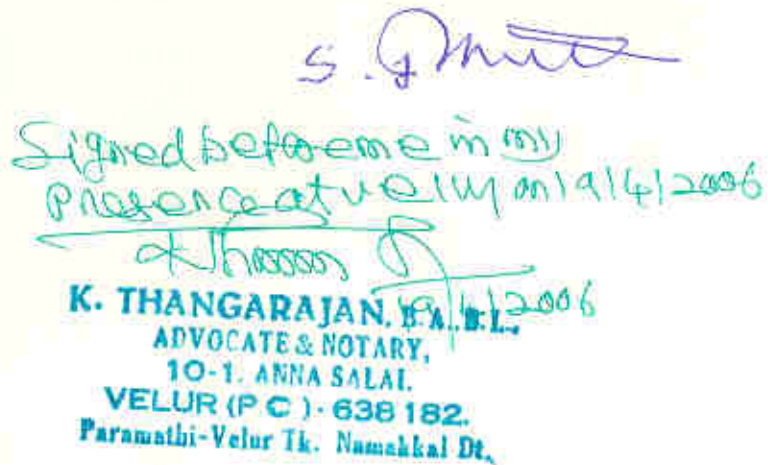 S.
Signed before me in my
Presence at Velur on 19/4/2006
19/4/2006
K. THANGARAJAN, B.A., B.L.,
ADVOCATE & NOTARY,
10-1. ANNA SALAI.
VELUR (P C) - 638 182.
Paramathi-Velur Tk. Namakkal Dt.